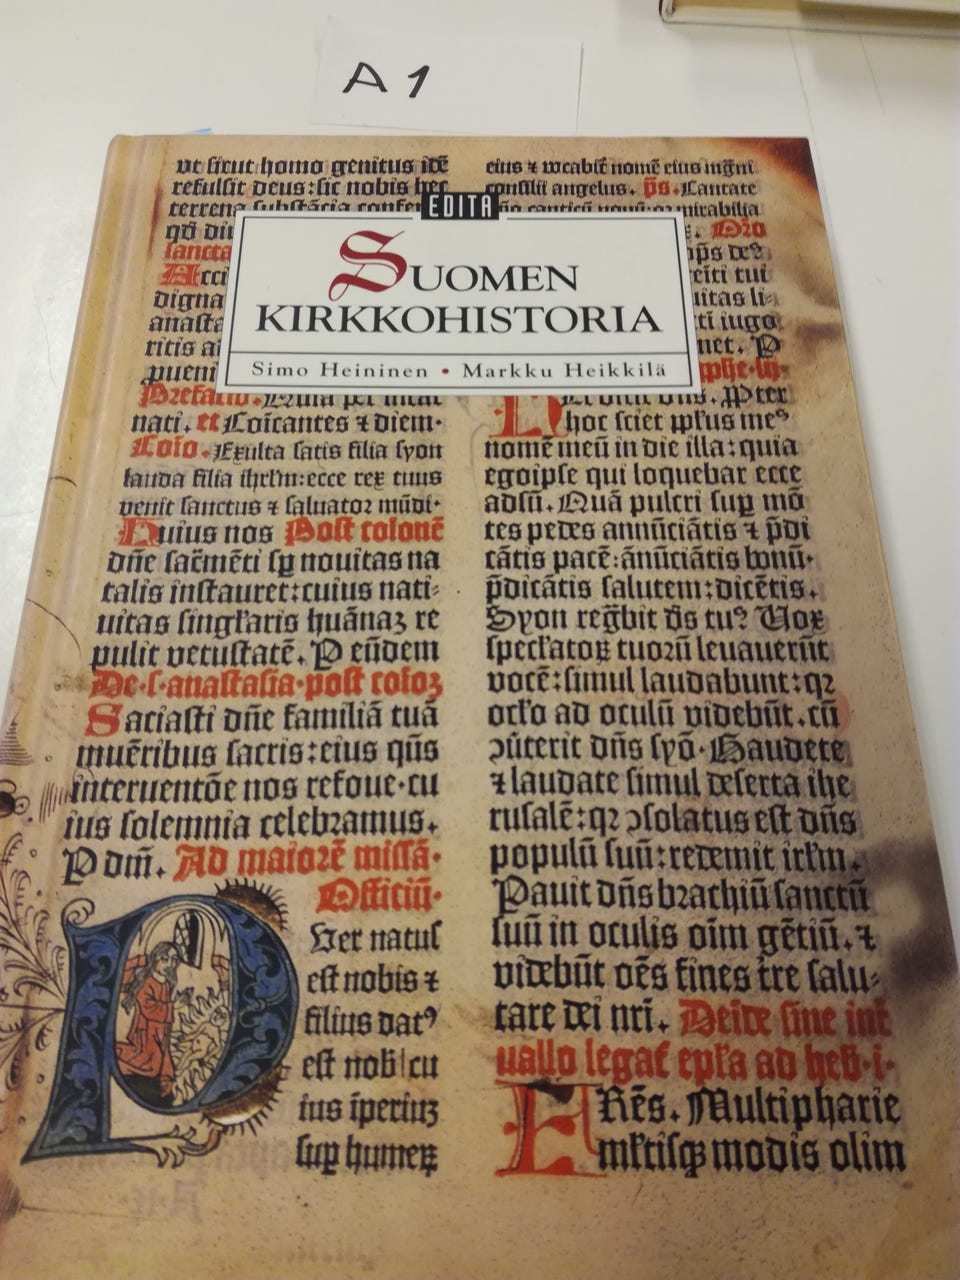 A 1
EDITA
SUOMEN
KIRKKOHISTORIA
Simo Heininen • Markku Heikkilä
vt sicut homo genitus idē
refulsit deus: sic nobis hec
terrena substācia confer
qd diu
sancta
Acci
digna
anasta
ritis
pueni
nati. et Coīcantes ⁊ diem·
Cōio. Exulta satis filia syon
lauda filia ihrl'm: ecce rex tuus
venit sanctus ⁊ saluator mūdi·
Huius nos Post colonē
dn̄e sac̄mēti sp̱ nouitas na
talis instauret: cuius nati⸗
uitas singl'aris huānaꝫ re
pulit vetustatē. P eūdem
De·s·anastasia·post coloꝫ
Saciasti dn̄e familiā tuā
munēribus sacris: eius qūs
interuentōe nos refoue·cu
ius solemnia celebramus.
P dm̄. Ad maiorē missā·
Officiū·
Per natus
est nobis ⁊
filius datꝰ
est nob|cu
ius īperiuꝫ
sup̱ humeꝝ
eius ⁊ vocabit̄ nomē eius mḡni
consilii angelus. p̄s. Cantate
mirabilia
Oro
hoc sciet ipsus meꝰ
nomē meū in die illa: quia
egoipse qui loquebar ecce
adsū. Quā pulcri sup̱ mō
tes pedes annūciātis ⁊ p̄di
cātis pacē: ānūciātis bonū·
p̄dicātis salutem: dicētis.
Syon regn̄bit ds̄ tuꝰ Vox
specl'atoꝝ tuoꝛū leuauerūt
vocē: simul laudabunt: qꝛ
ocl'o ad oculū videbūt. cū
ↄūterit dn̄s syō· Gaudete
⁊ laudate simul deserta ihe
rusalē: qꝛ ↄsolatus est dn̄s
populū suū: redemit irl'm.
Pauit dn̄s brachiū sanctū
suū in oculis oīm gētiū. ⁊
videbūt oēs fines t̄re salu⸗
tare dei nrī. Deīde sine int̄
uallo legat̄ epl'a ad heb·i·
FRēs. Multipharie
ml'tisqꝫ modis olim